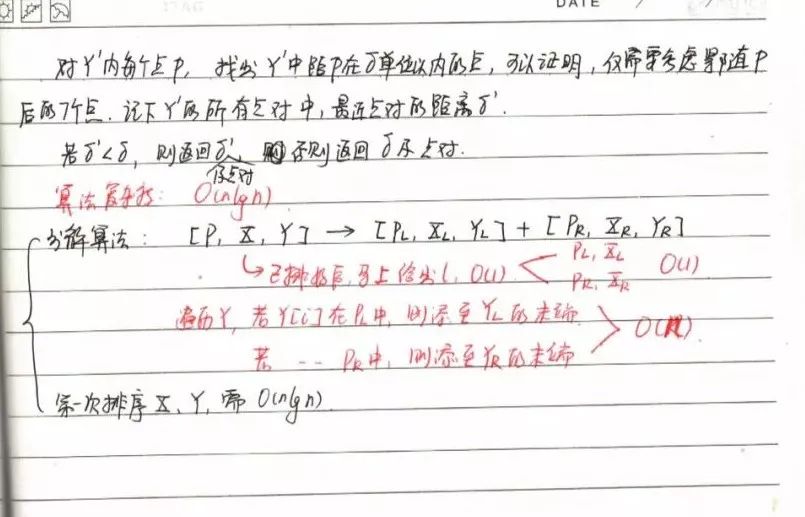 DATE
对Y'内每个点P, 找出Y'中距P在δ单位以内的点, 可以证明, 仅需要考虑紧随P
后的7个点. 记下Y'的所有点对中, 最近点对的距离δ'.
若δ'<δ, 则返回δ', 否则返回δ及点对.
及点对
算法复杂度: O(nlgn)
分解算法: [P, X, Y] → [PL, XL, YL] + [PR, XR, YR]
↳已排好后, 马上给出l, O(1) < PL, XL
PR, XR O(1)
遍历Y, 若Y[i]在PL中, 则添至YL的末端
若 -- PR中, 则添至YR的末端 > O(n)
第一次排序X、Y, 需O(nlgn)